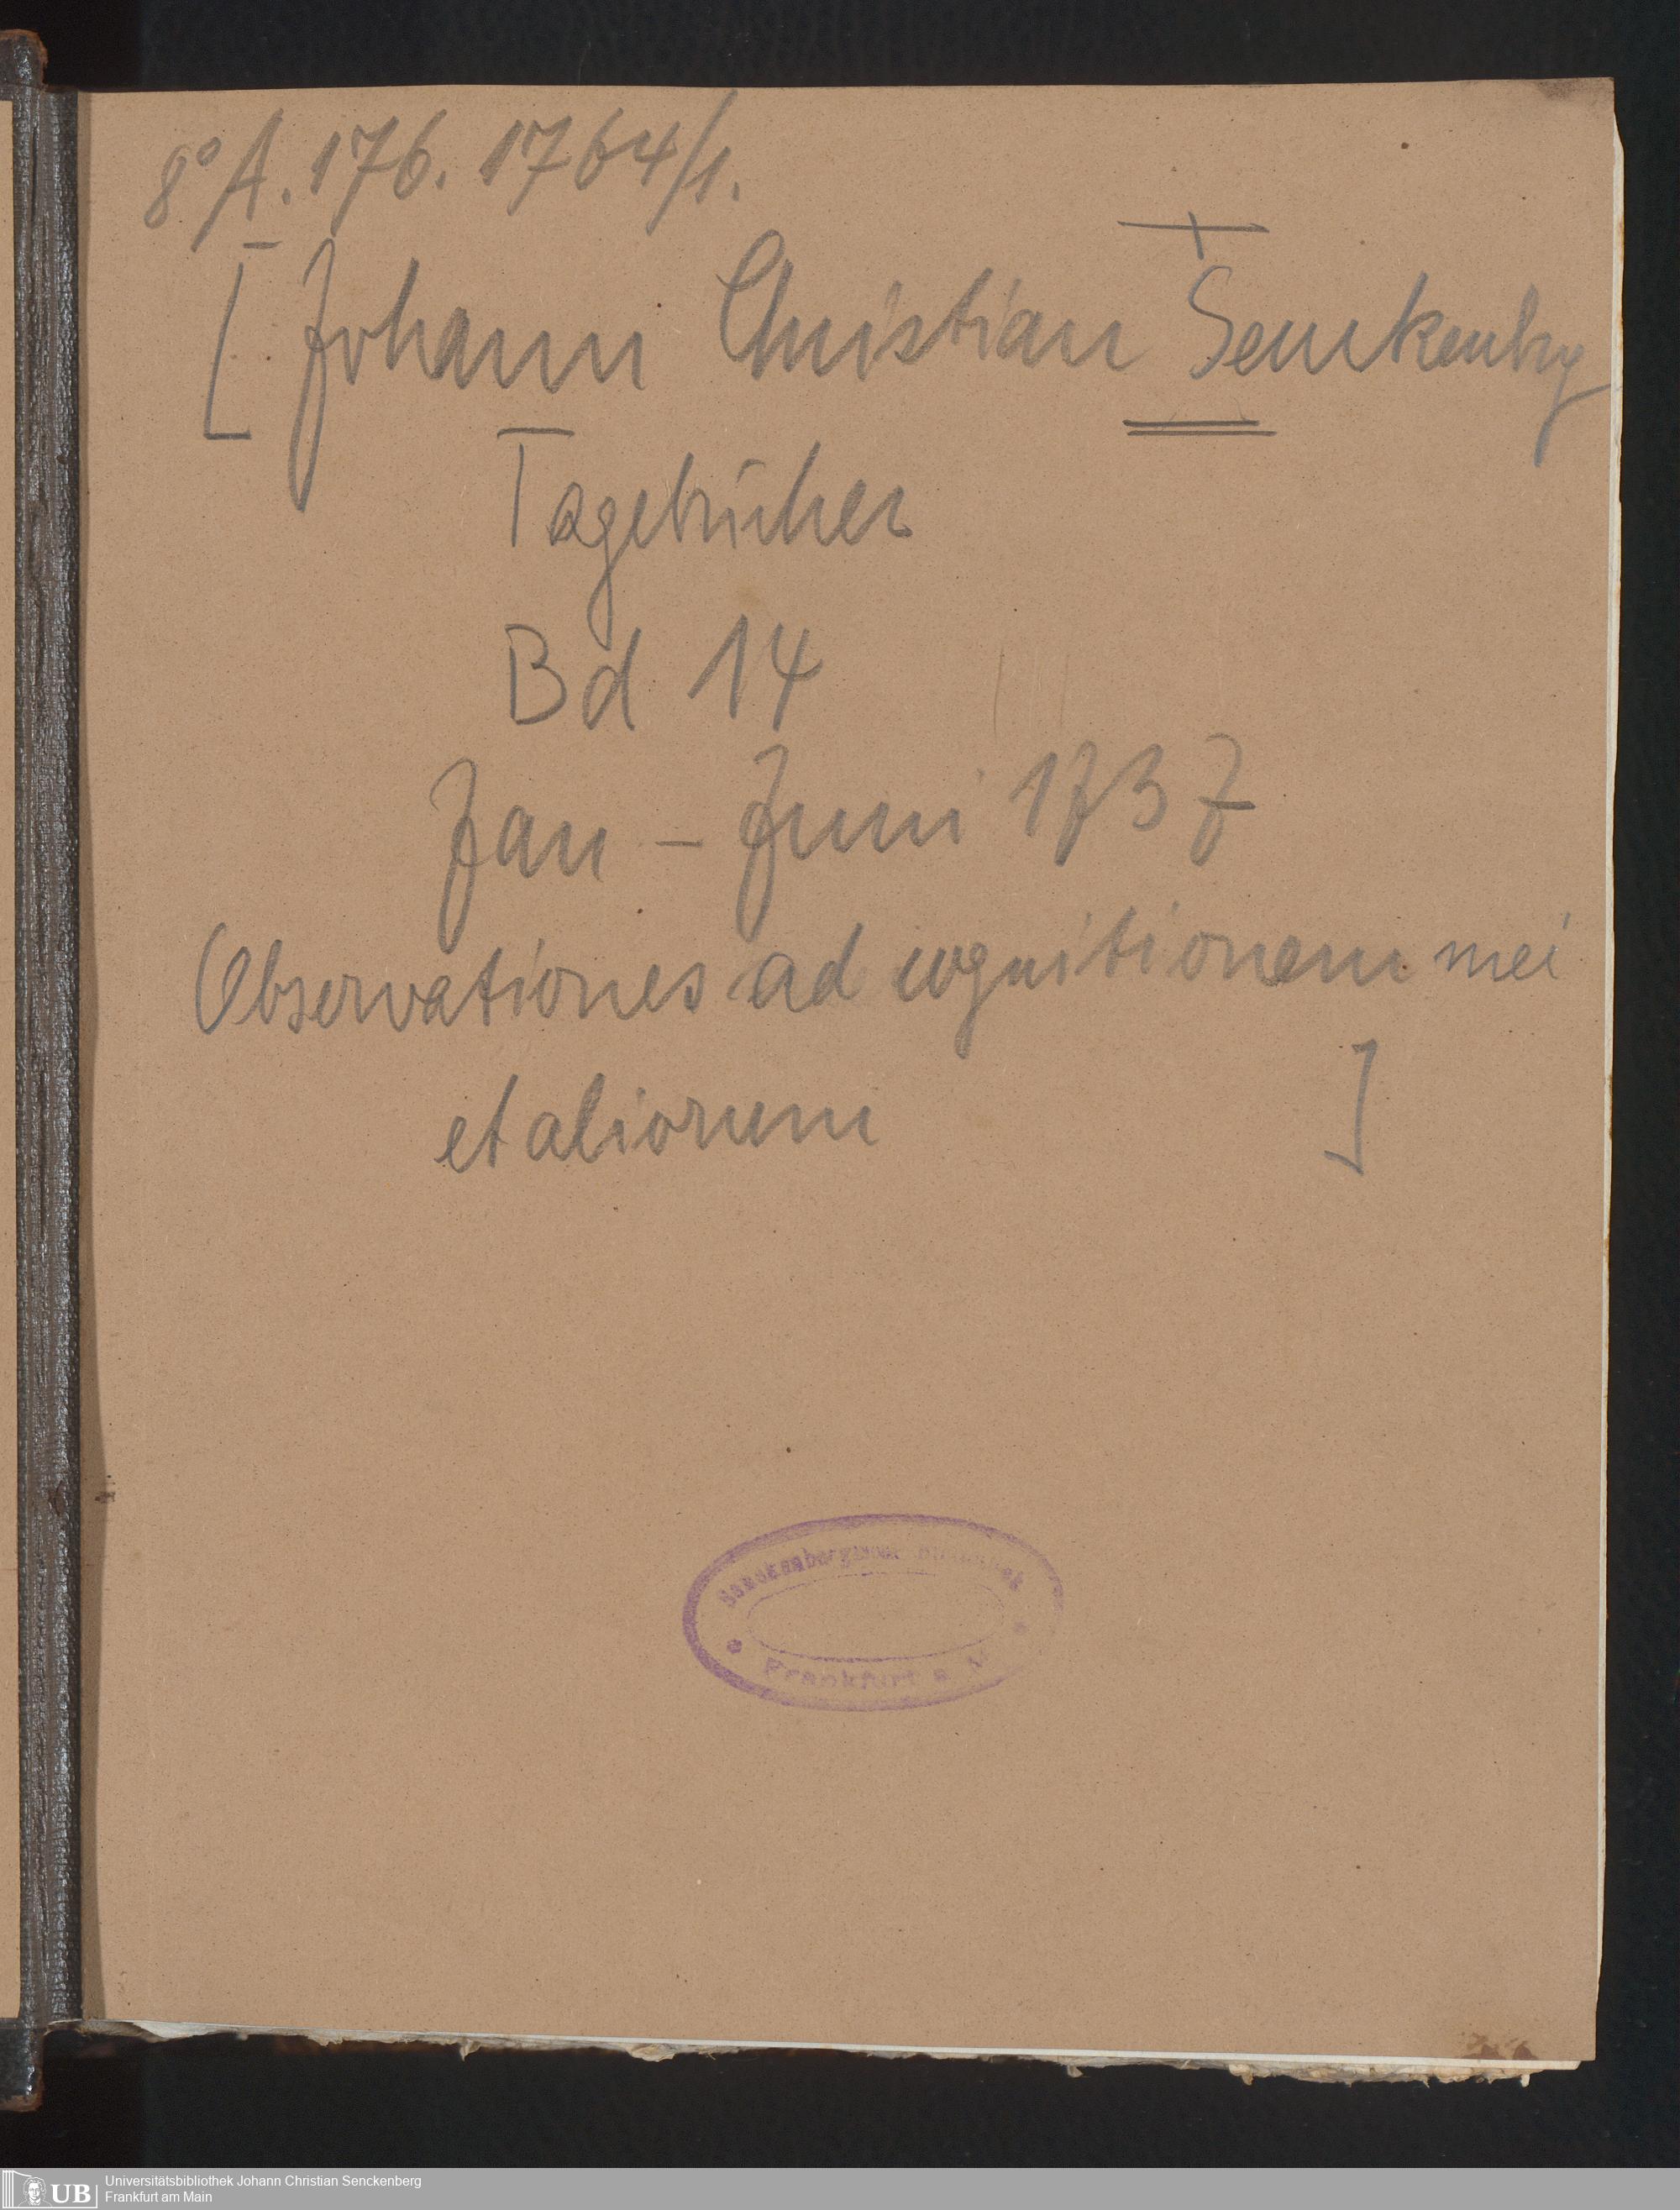 8° A. 176. 1764/1.
[Johann Christian Senckenberg
Tagebücher
Bd 14
Jan – Juni 1737
Observationes ad cognitionem mei
et aliorum ]
Senckenbergische Bibliothek
Frankfurt a. M.
UB
Universitätsbibliothek Johann Christian Senckenberg
Frankfurt am Main